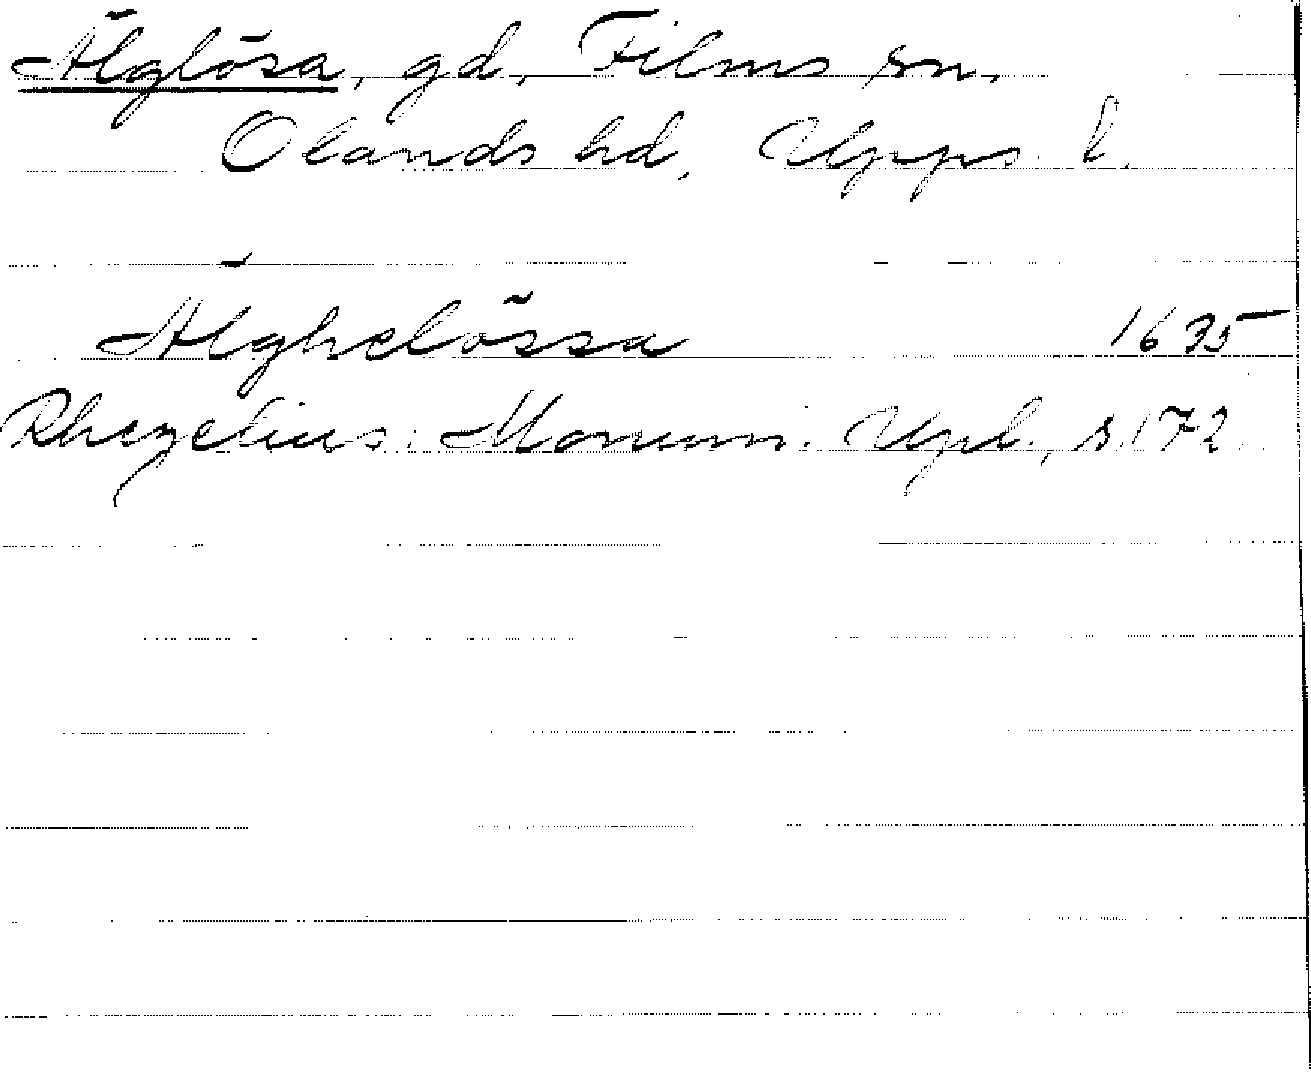 Älglösa, gd, Films sn,
Olands hd, Upps. l.
Älghelössa 1635
Rhezelius: Monum. Upl., s. 172